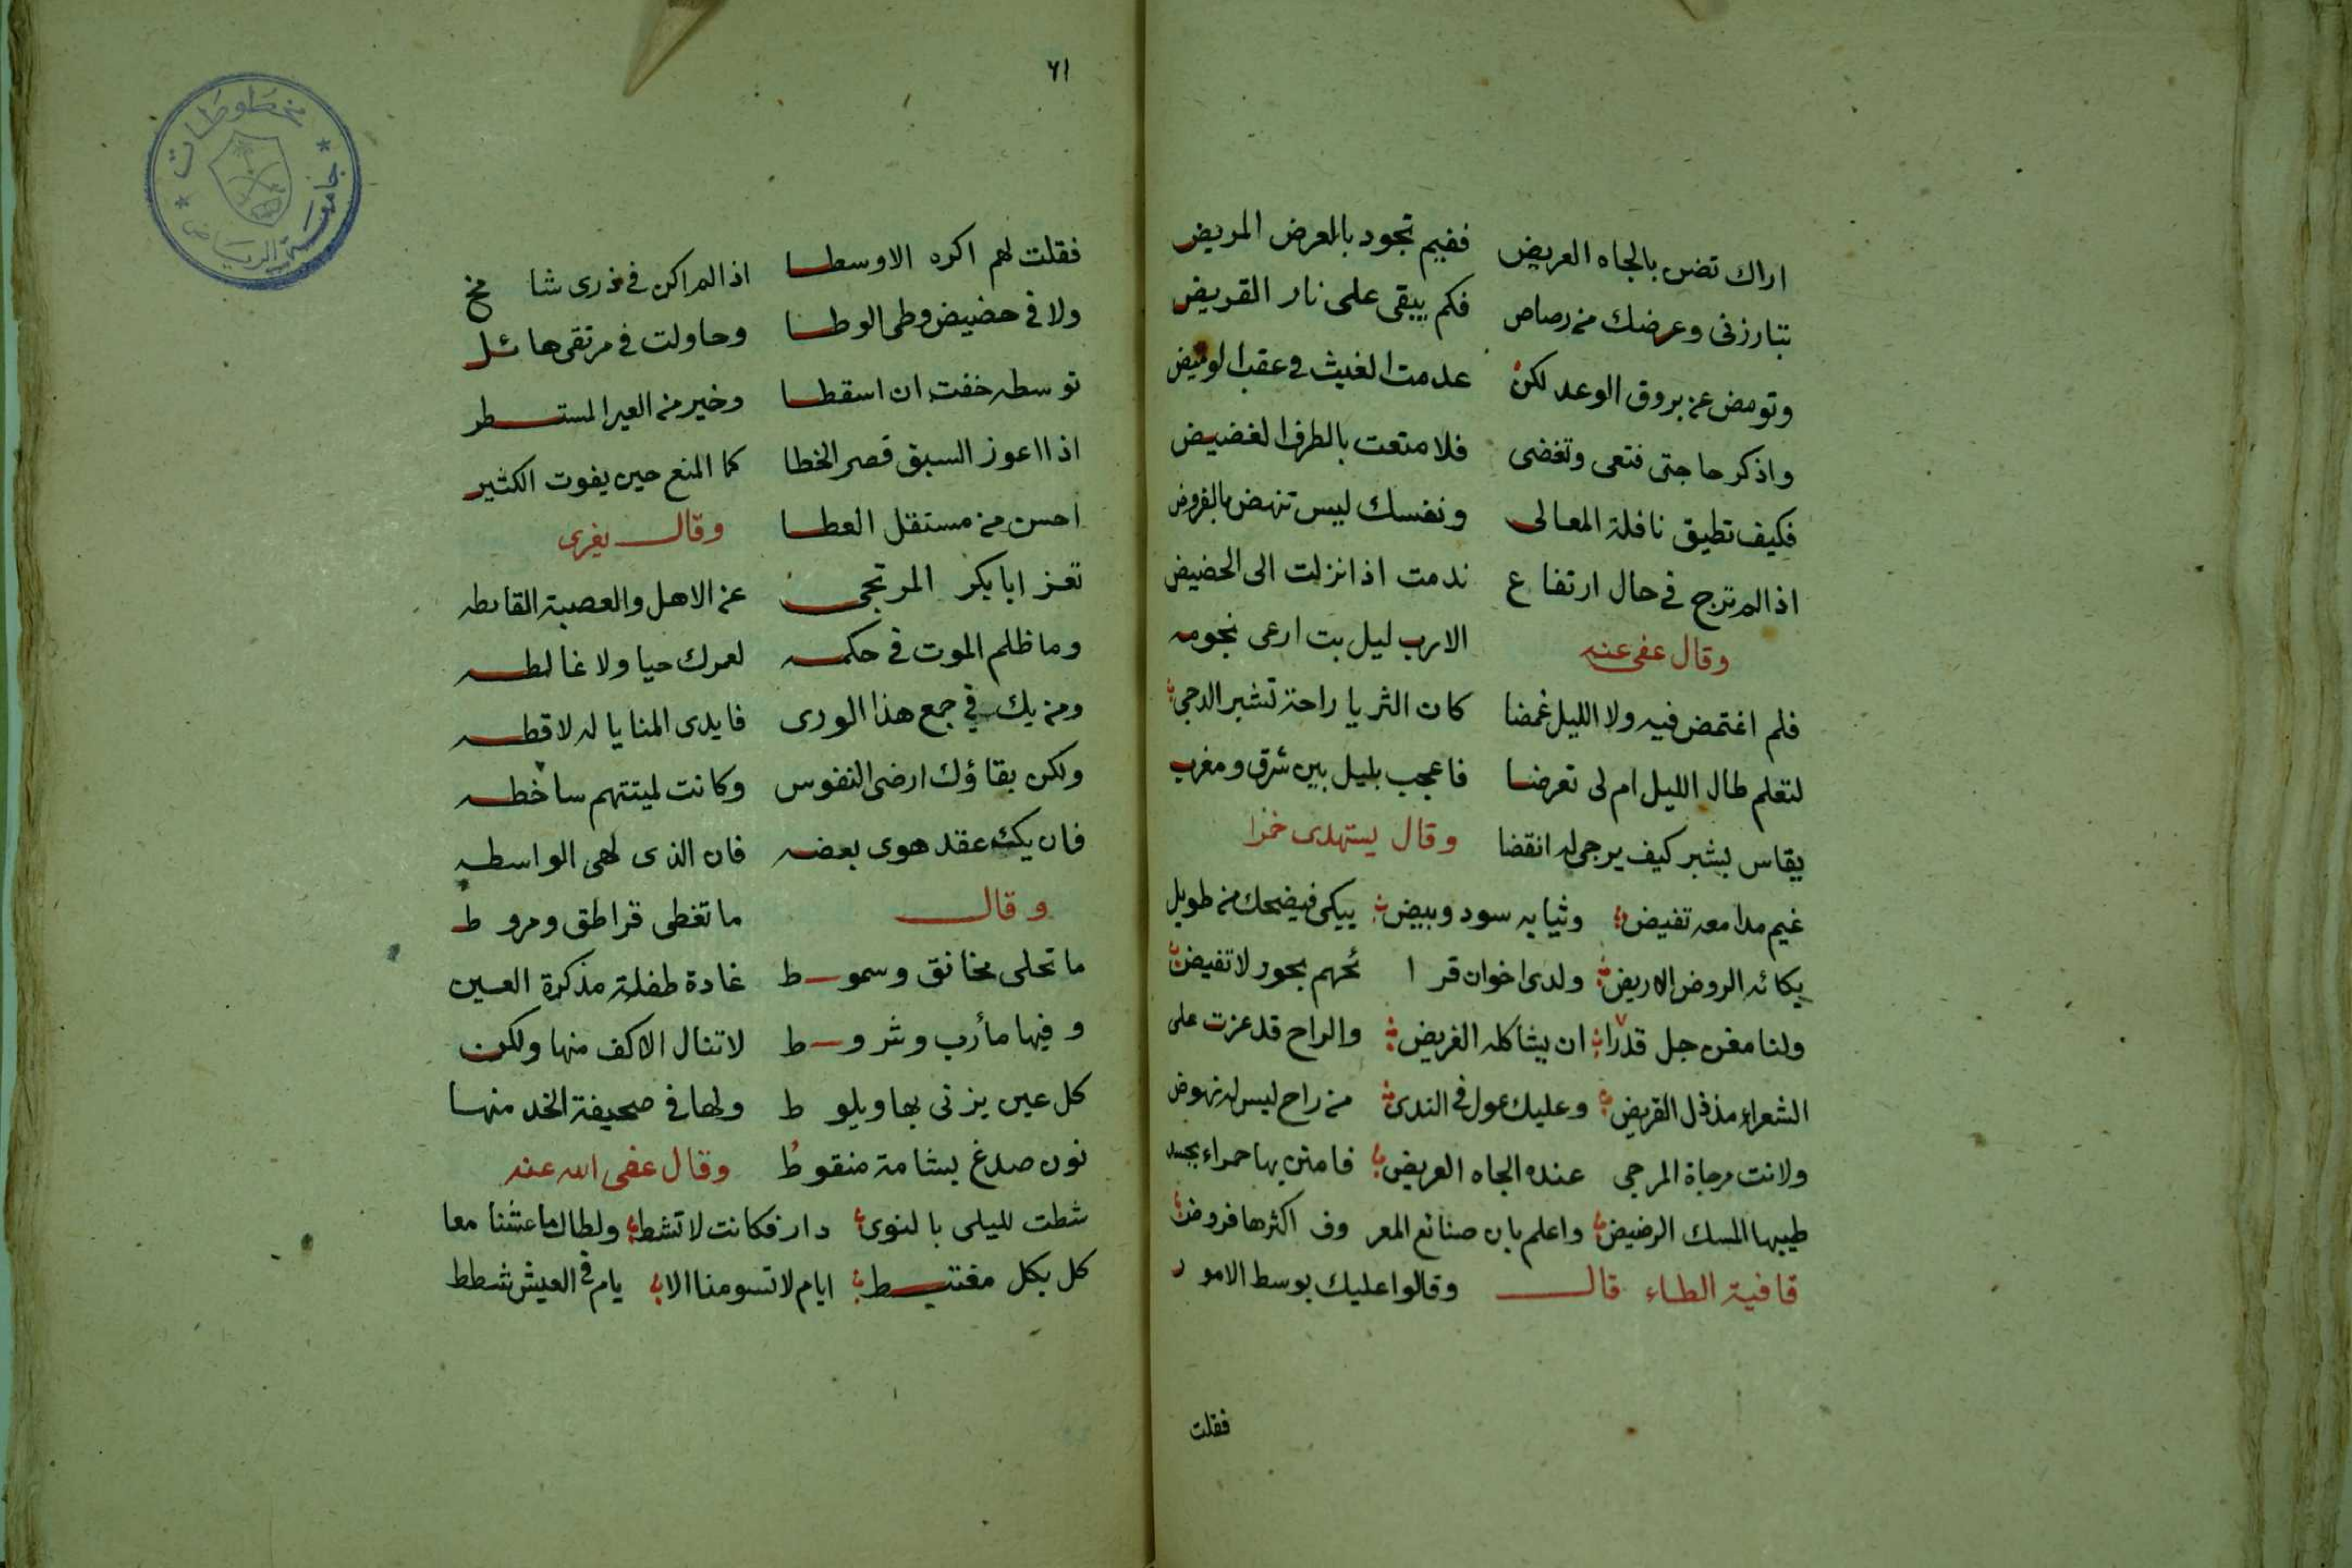 اراك تضن بالجاه العريض ففيم تجود بالعرض المريض
تبارزنى وعرضك من رصاص فكم يبقى على نار القريض
وتومض عن بروق الوعد لكن عدمت الغيث فى عقب الوميض
واذكر حاجتى فتعى وتغضى فلا متعت بالطرف الغضيض
فكيف تطيق نافلة المعالى ونفسك ليس تنهض بالفروض
اذا لم ترج فى حال ارتفاع ندمت اذا نزلت الى الحضيض
وقال عفى عنه الا رب ليل بت ارعى نجومه
فلم اغتمض فيه ولا الليل غمضا كان الثريا راحة تشبر الدجى
لتعلم طال الليل ام لى تعرضا فاعجب بليل بين شرق ومغرب
يقاس بشبر كيف يرجى له انقضا وقال يستهدى خمرا
غيم مدامعه تفيض وثيابه سود وبيض يبكى فيضحك من طويل
بكائه الروض الاريض ولدى اخوان قرا ئحهم بحور لا تفيض
ولنا مغن جل قدرا ان يشاكله الغريض والراح قد عزت على
الشعراء مذ ذل القريض وعليك عول فى الندى من راح ليس له نهوض
ولانت مرجاة المرجى عنده الجاه العريض فامنن بها حمراء يحسد
طيبها المسك الرضيض واعلم بان صنائع المعر وف اكثرها فروض
قافية الطاء قال وقالوا عليك بوسط الامور
فقلت
٦١
فقلت لهم اكره الاوسطا اذا لم اكن فى ذرى شامخ
ولا فى حضيض وطى الوطا وحاولت فى مرتقى هائل
توسطه خفت ان اسقطا وخير من العير المستطر
اذا اعوز السبق قصر الخطا كما المنع حين يفوت الكثير
احسن من مستقل العطا وقال يغرى
تعز ابا بكر المرتجى عن الاهل والعصبة القابطه
وما ظلم الموت فى حكمه لعمرك حيا ولا غالطه
ومن يك فى جمع هذا الورى فايدى المنايا له لاقطه
ولكن بقاؤك ارضى النفوس وكانت لميتتهم ساخطه
فان يك عقد هوى بعضه فان الذى لهى الواسطه
وقال ما تغطى قراطق ومروط
ما تحلى مخانق وسموط غادة طفلة مذكرة العين
وفيها مأرب وشروط لا تنال الاكف منها ولكن
كل عين يزنى بها ويلوط ولها فى صحيفة الخد منها
نون صدغ بشامة منقوط وقال عفى الله عنه
شطت لليلى بالنوى دار فكانت لا تشط ولطالما عشنا معا
كل بكل مغتبط ايام لا تسومنا الا يام فى العيش شطط
مخطوطات
جامعة الرياض